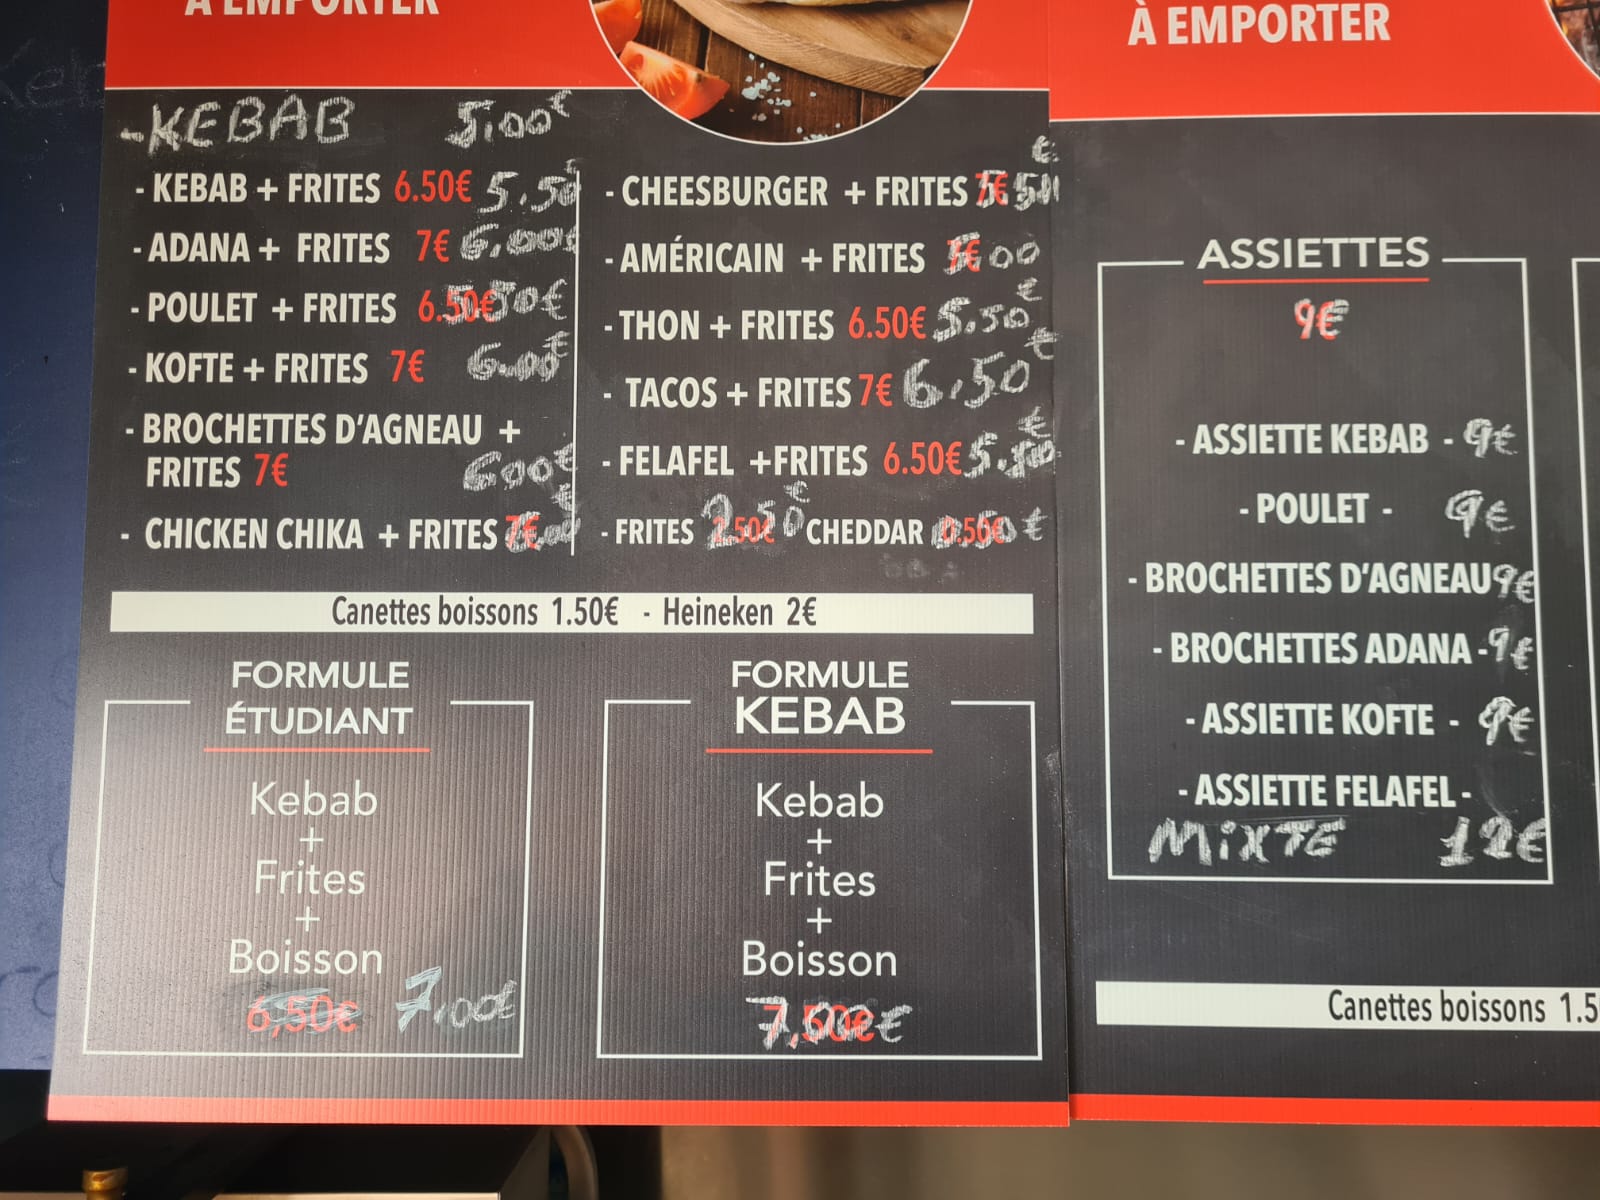 À EMPORTER
-KEBAB 5,00€
- KEBAB + FRITES 6.50€ 5.50
- ADANA + FRITES 7€ 6.00€
- POULET + FRITES 6.50€ 5.50€
- KOFTE + FRITES 7€ 6.00€
- BROCHETTES D'AGNEAU +
FRITES 7€ 600€
- CHICKEN CHIKA + FRITES 7€
- CHEESBURGER + FRITES 7€ 5.50 €
- AMÉRICAIN + FRITES 7€
- THON + FRITES 6.50€ 5.50€
- TACOS + FRITES 7€ 6,50€
- FELAFEL +FRITES 6.50€ 5.50€
- FRITES 2.50€ CHEDDAR 0.50€
Canettes boissons 1.50€ - Heineken 2€
FORMULE
ÉTUDIANT
Kebab
+
Frites
+
Boisson
6,50€ 7,00€
FORMULE
KEBAB
Kebab
+
Frites
+
Boisson
7,50€ 7,00€
À EMPORTER
ASSIETTES
9€
- ASSIETTE KEBAB - 9€
- POULET - 9€
- BROCHETTES D'AGNEAU 9€
- BROCHETTES ADANA - 9€
- ASSIETTE KOFTE - 9€
- ASSIETTE FELAFEL -
MiXTE 12€
Canettes boissons 1.5